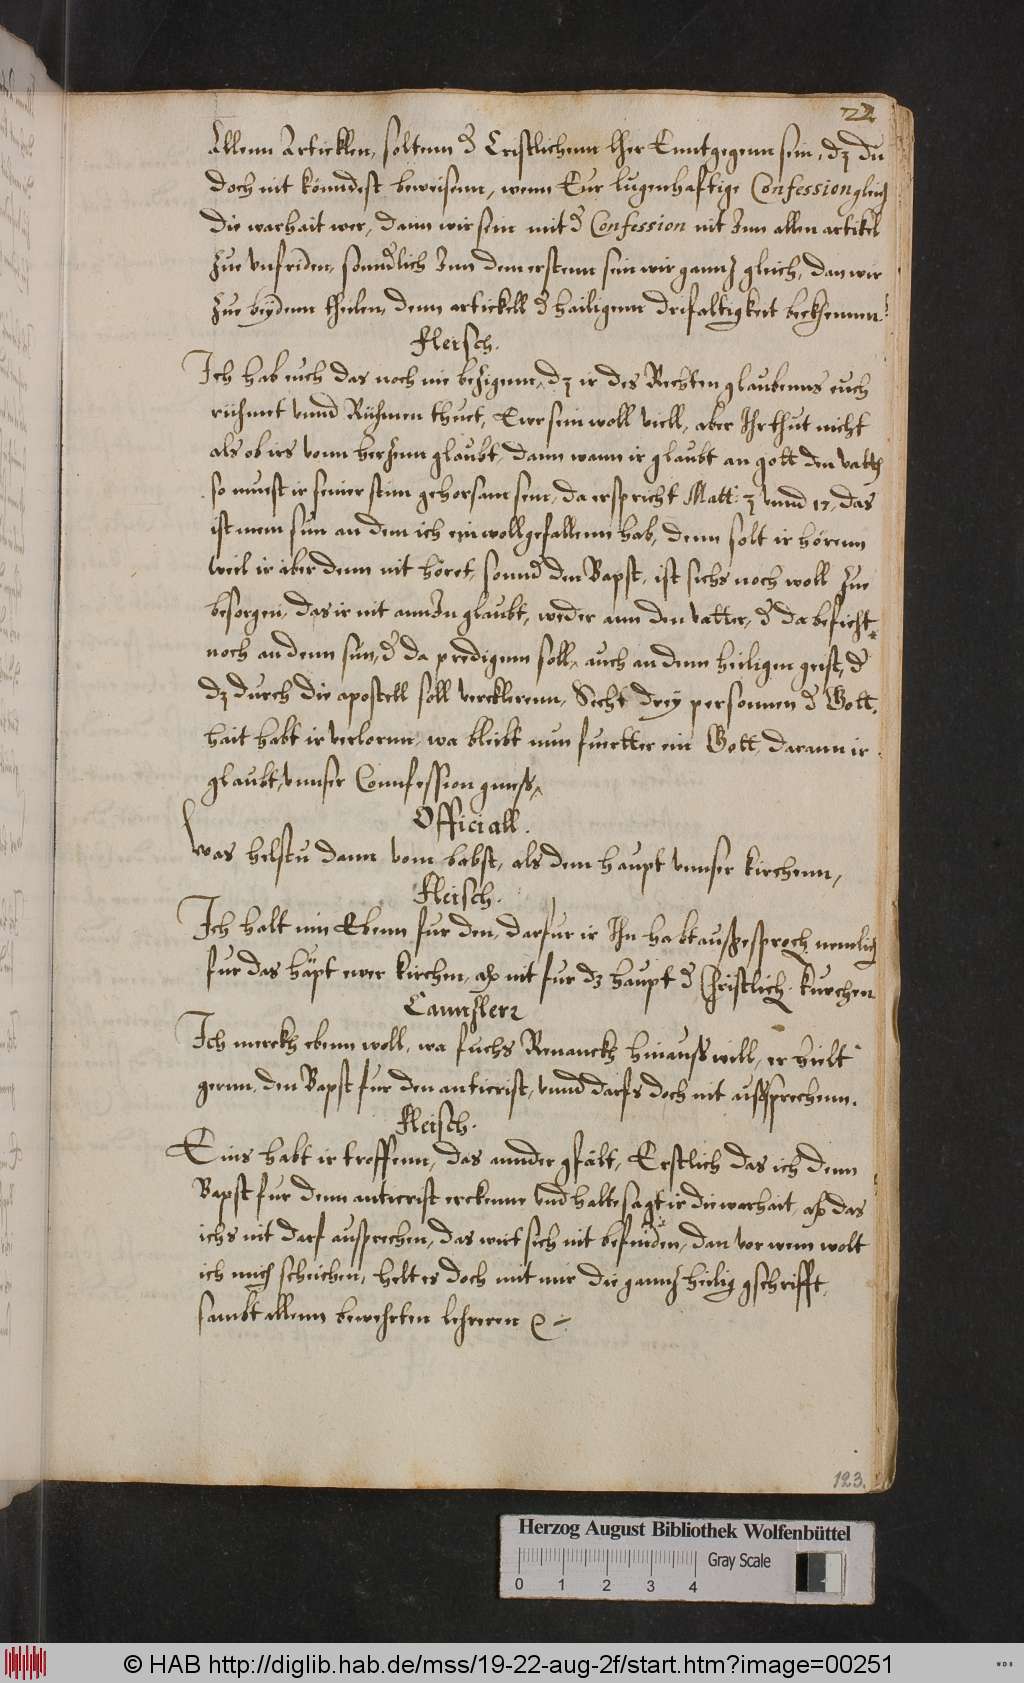 22
Allenn Articklen, soltenn d Cristlichenn lher Enntgegenn sein, dz du
doch nit könndest beweisenn, wenn Eur lugenhafftige Confession gleich
die warhait wer, dann wir sein mit d Confession nit Inn allen artikel
Zue unfriden, sonndlich Inn dem erstenn sein wir gannz gleich, dan wir
Zue beydenn theilen, denn artickell d hailigenn drifaltigkeit bekhennen
Fleisch.
Ich hab euch das noch nie bezigenn, dz ir des Rechten glaubenns euch
rühmet unnd Rühmen thuet, Ewr sein woll viell, aber Ihr thut nicht
als ob irs vonn herzenn glaubt, dann wann ir glaubt an gott den vatter
so muest ir seiner stim gehorsam sein, da er spricht Matt: 3 unnd 17, das
ist mein sun an dem ich ein wollgefallenn hab, denn solt ir hörenn
weil ir aber denn nit höret, sonnd den Bapst, ist sichs noch woll Zue
besorgen, das ir nit ann In glaubt, weder ann den vatter, d da beficht
noch an denn sun, d da predigenn soll, auch an denn heiligen geist, d
dz durch die apostell soll verklerenn, Secht drey personnen d Gott.
hait habt ir verlornn, wa bleibt nun fuertter ein Gott, darann ir
glaubt, unnser Connfession gmeß,
Officiall.
Was helstu dann vom babst, als dem haupt unnser kirchenn,
Fleisch.
Ich halt inn Ebenn fur den, darfur ir Ihn habt außgesproch nemlich
fur das häpt ewer kirchen, aber nit fur dz haupt d Christlich kirchen
Cannzler
Ich merckh ebenn woll, wa fuchs Renanckh hinauß will, er hielt
gernn, den Bapst fur den anticrist, unnd darfs doch nit aussprechenn.
Fleisch.
Eins habt ir troffenn, das annder gfält, Erstlich das ich denn
Bapst fur denn anticrist erckenne und halte sagt ir die warhait, aber das
ichs nit darf aussprechen, das wirt sich nit befinden, dan vor wem wolt
ich mich scheichen, helt es doch mit mir die gannz heilig gschrifft,
sambt allenn bewehrten lehreren
123.
Herzog August Bibliothek Wolfenbüttel
Gray Scale
0 1 2 3 4
© HAB http://diglib.hab.de/mss/19-22-aug-2f/start.htm?image=00251